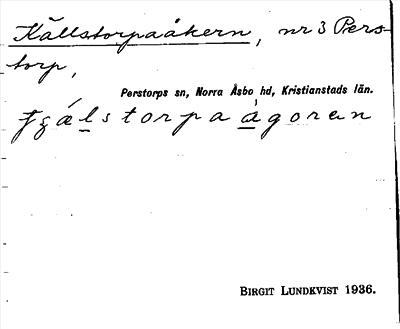 Källstorpaåkern, nr 3 Pers-
torp,
Perstorps sn, Norra Åsbo hd, Kristianstads län.
BIRGIT LUNDKVIST 1936.